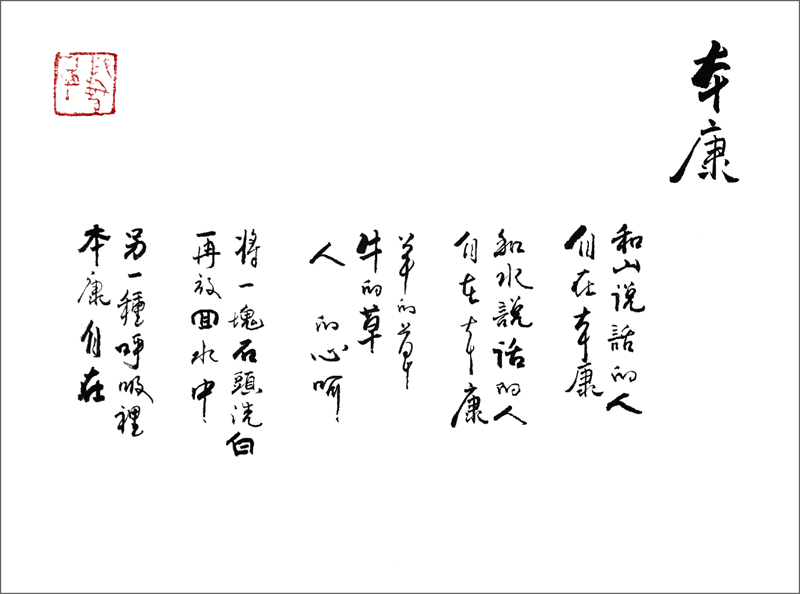 本康
和山说話的人
自在本康
和水說话的人
自在本康
羊的草
牛的草
人 的心呵、
將一塊石頭洗白
再放回水中、
另一種呼吸裡
本康自在